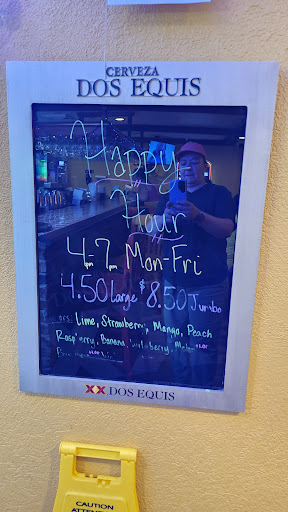 CERVEZA
DOS EQUIS
Happy
Hour
4pm-7pm Mon-Fri
4.50 Large $8.50 Jumbo
Lime, Strawberry, Mango, Peach
Raspberry, Banana, Melon
XX DOS EQUIS
CAUTION